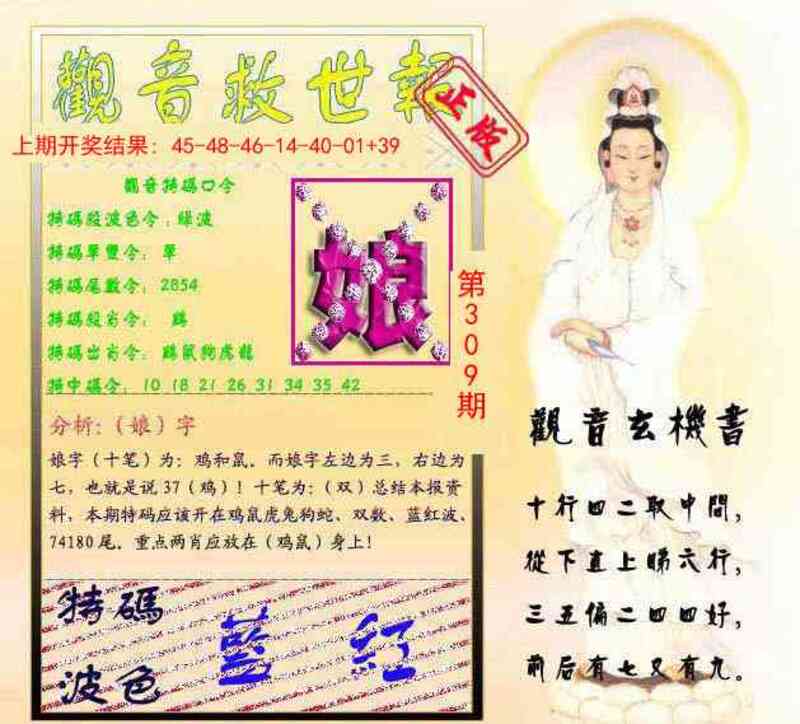 觀音救世報
正版
上期开奖结果：45-48-46-14-40-01+39
觀音特碼口令
特碼段波色令：綠波
特碼單雙令：單
特碼尾數令：2854
特碼段肖令：
特碼出肖令：鼠狗虎龍
特中碼令：10 18 21 26 31 34 35 42
娘
第309期
分析:（娘）字
娘字（十笔）为：鸡和鼠．而娘字左边为三，右边为
七，也就是说37（鸡）！十笔为：（双）总结本报资
料，本期特码应该开在鸡鼠虎兔狗蛇、双数、蓝红波、
74180尾．重点两肖应放在（鸡鼠）身上！
特碼
波色
藍 紅
觀音玄機書
十行四二取中間，
從下直上睇六行，
三五偏二四四好，
前后有七又有九。